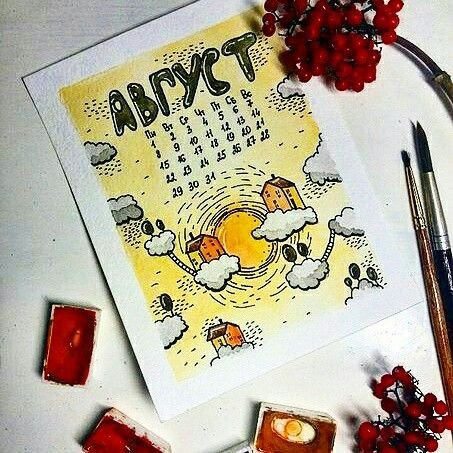 АВГУСТ
Пн Вт Ср Чт Пт Сб Вс
1 2 3 4 5 6 7
8 9 10 11 12 13 14
15 16 17 18 19 20 21
22 23 24 25 26 27 28
29 30 31